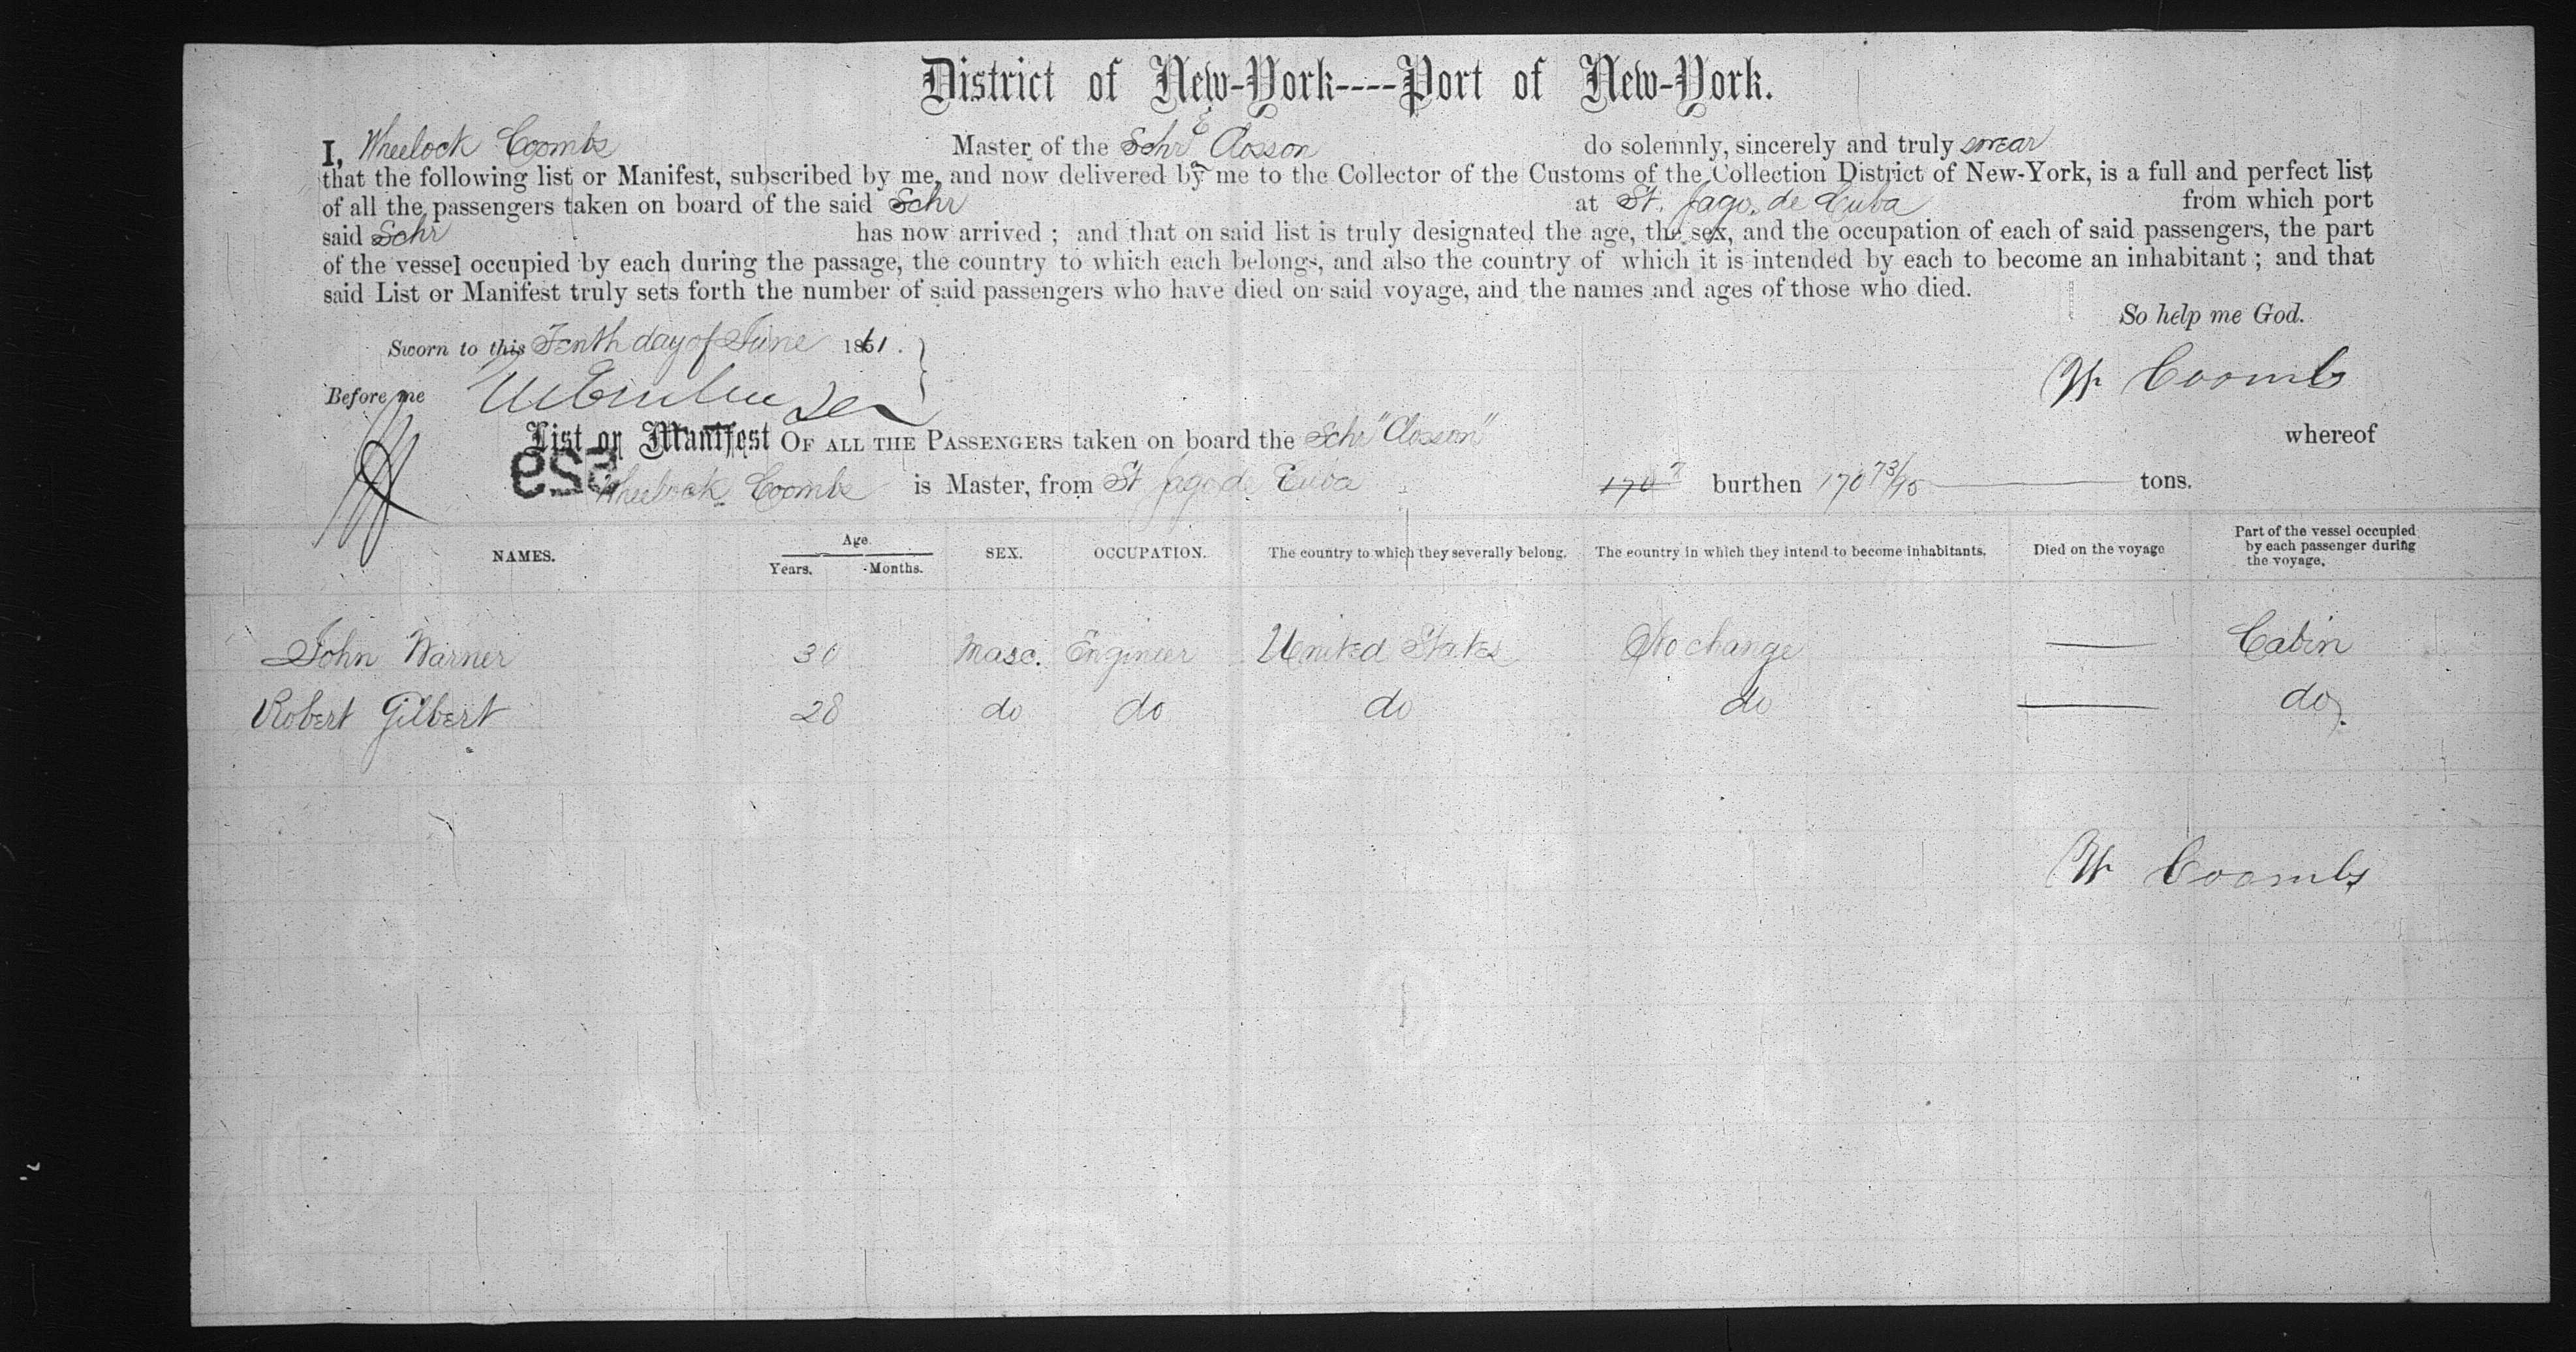 District of New-York----Port of New-York.
E
I, Wheelock Coombs Master of the Schr Closson do solemnly, sincerely and truly swear
that the following list or Manifest, subscribed by me, and now delivered by me to the Collector of the Customs of the Collection District of New-York, is a full and perfect list
of all the passengers taken on board of the said Schr at St. Jago, de Cuba from which port
said Schr has now arrived ; and that on said list is truly designated the age, the sex, and the occupation of each of said passengers, the part
of the vessel occupied by each during the passage, the country to which each belongs, and also the country of which it is intended by each to become an inhabitant ; and that
said List or Manifest truly sets forth the number of said passengers who have died on said voyage, and the names and ages of those who died.
So help me God.
Sworn to this Tenth day of June 1861.
W Coombs
Before me
List or Manifest OF ALL THE PASSENGERS taken on board the Schr "Closson" whereof
529
Wheelock Coombs is Master, from St Jago de Cuba burthen 170 73/95 tons.
NAMES. Age Years. Months. SEX. OCCUPATION. The country to which they severally belong. The country in which they intend to become inhabitants. Died on the voyage Part of the vessel occupied by each passenger during the voyage.
John Warner 30 Masc. Engineer United States No change — Cabin
Robert Gilbert 28 do do do do — do
W Coombs